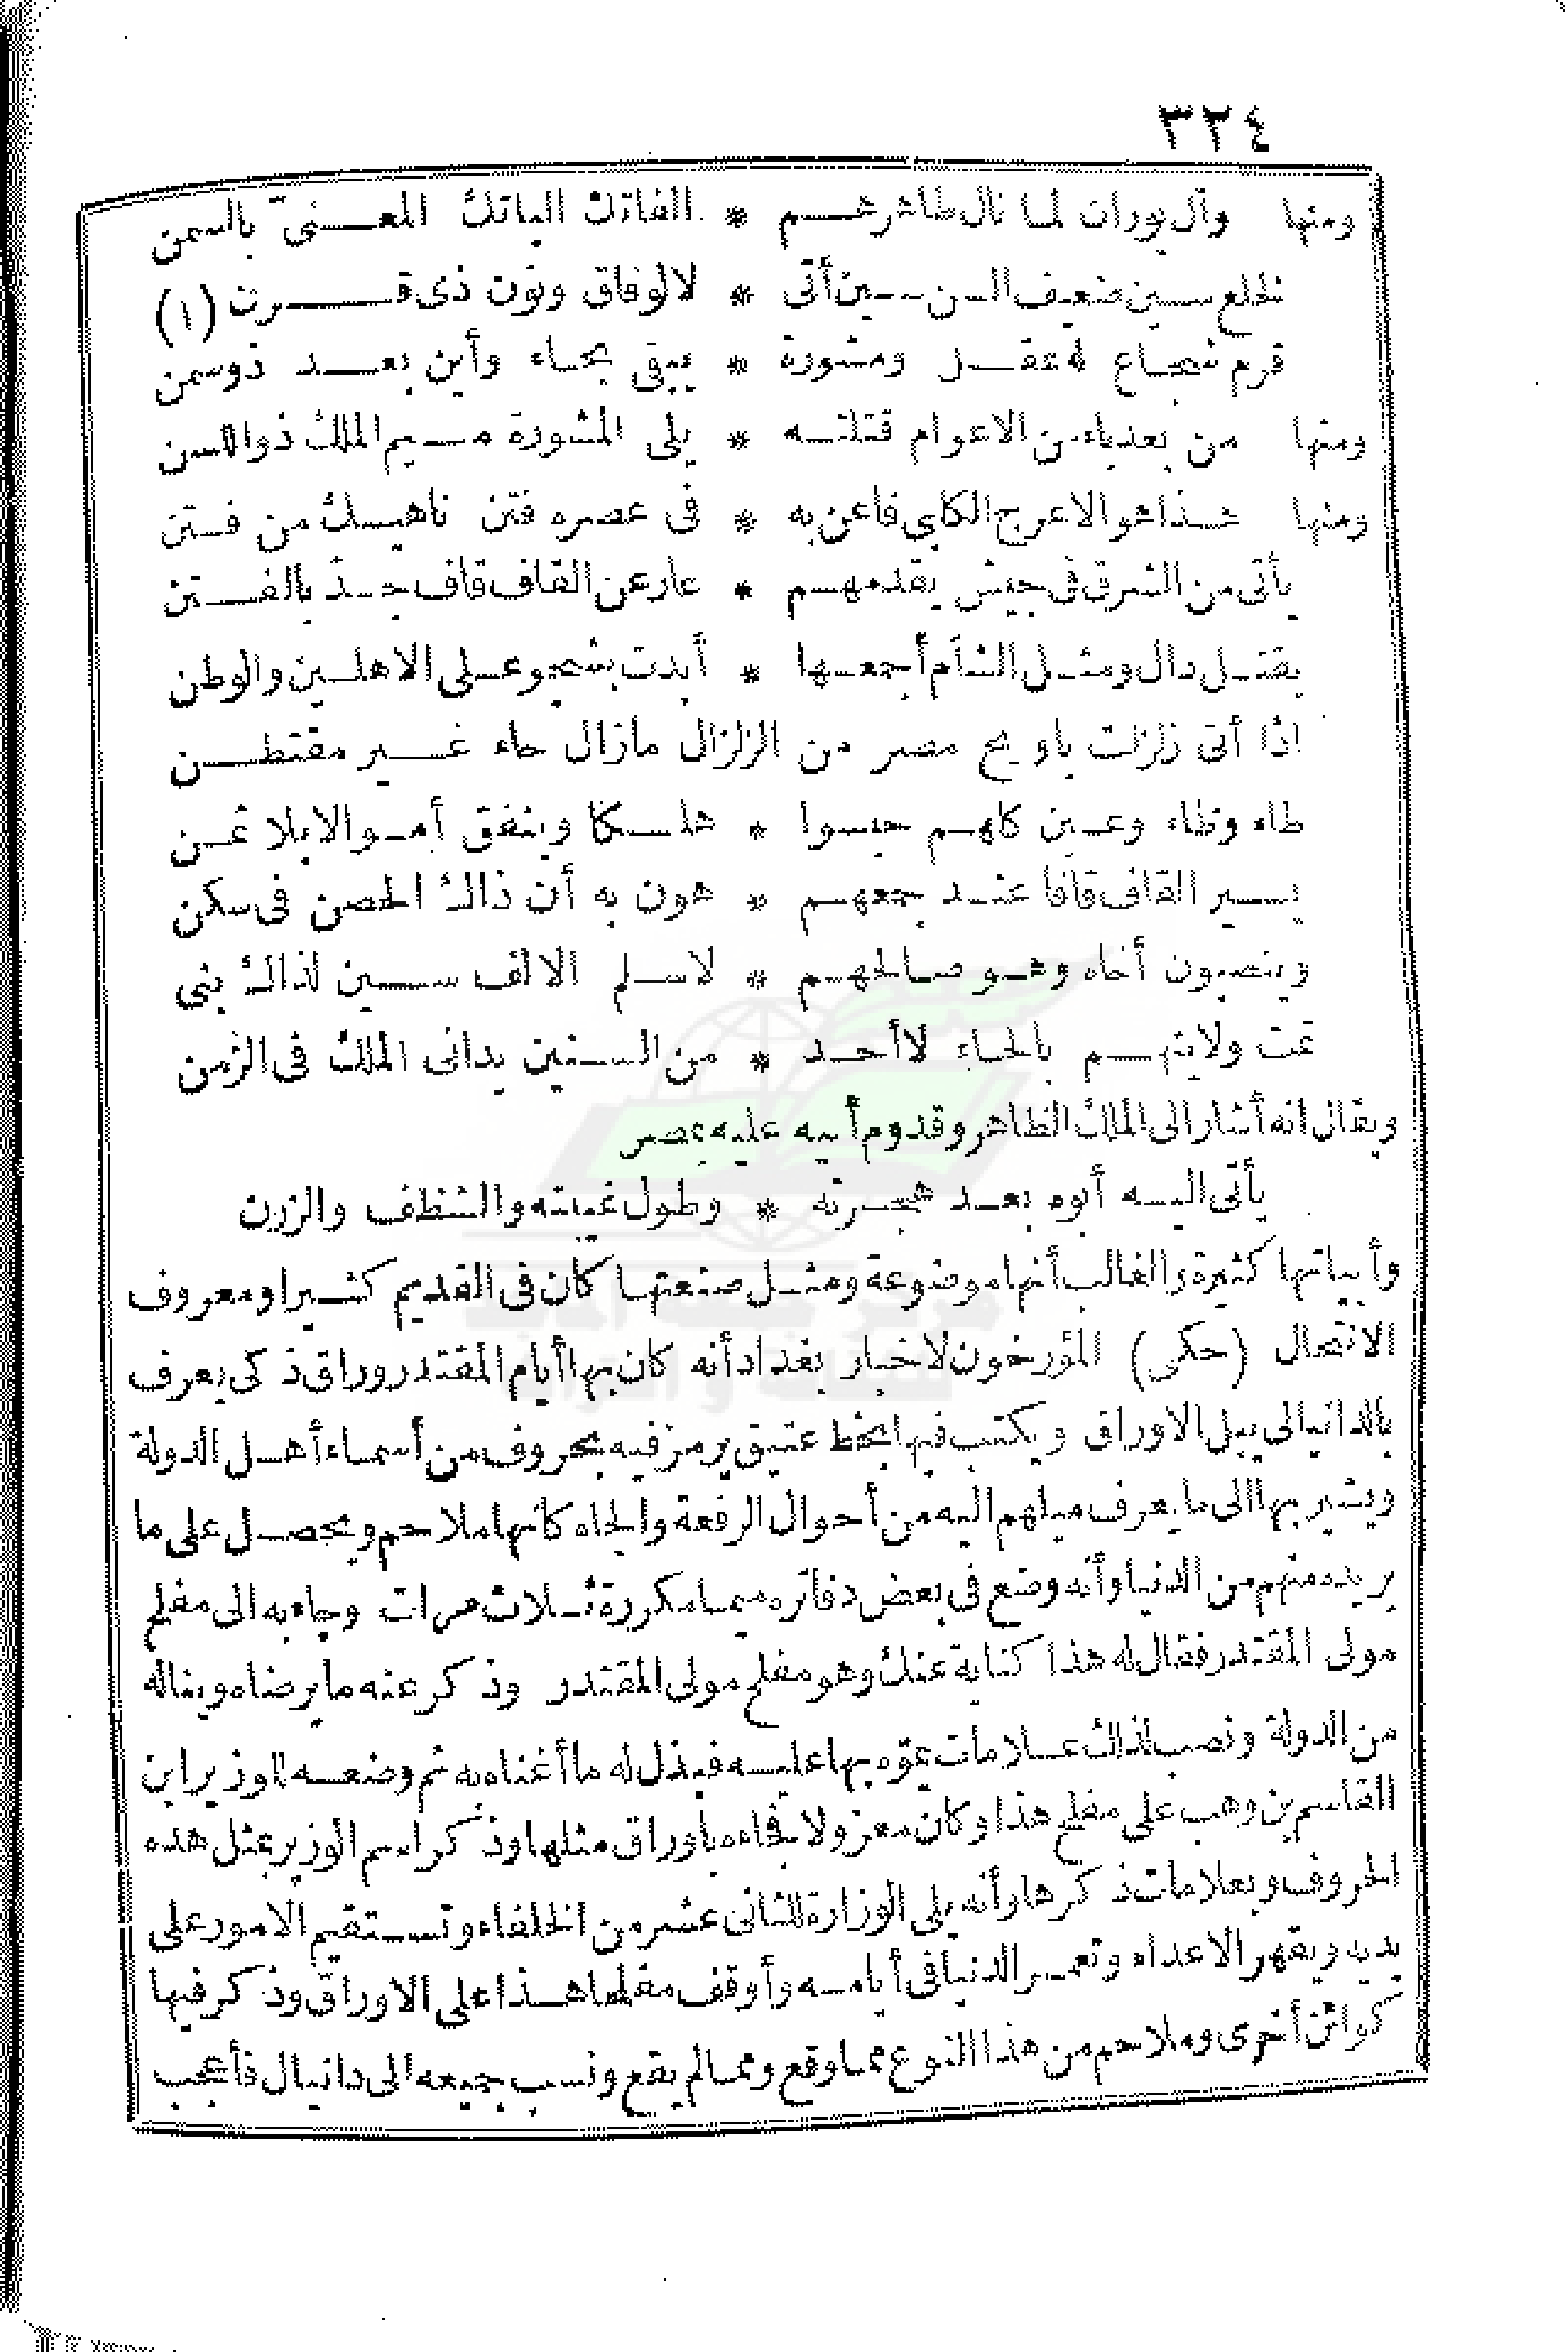 ٣٢٤
ومنها وآل بوران لما نال طاهرهم * الفاتك الباتك المعنىّ بالسمن
لخلع سين ضعيف السن سين أتى * لالوفاق ونون ذى قرن (١)
قرم شجاع له عقل ومشورة * يبقى بحاء وأين بعد ذو سمن
ومنها من بعد باء من الاعوام قتلته * يلى المشورة ميم الملك ذو اللسن
ومنها هذا هو الاعرج الكلبي فاعن به * فى عصره فتن ناهيك من فتن
يأتى من الشرق فى جيش يقدمهم * عار عن القاف قاف جد بالفتن
بقتل دال ومثل الشأم أجمعها * أبدت بشجو على الاهلين والوطن
اذا أتى زلزلت ياويح مصر من الزلزال مازال حاء غير مقتطن
طاء وظاء وعين كلهم حبسوا * هلكا وينفق أموالا بلا ثمن
يسير القاف قافا عند جمعهم * هون به أن ذاك الحصن فى سكن
وينصبون أخاه وهو صالحهم * لاسلم الالف سين لذاك بنى
تمت ولايتهم بالحاء لاأحد * من السنين يدانى الملك فى الزمن
ويقال انه أشار الى الملك الظاهر وقدوم أبيه عليه بمصر
يأتى اليه أبوه بعد هجرته * وطول غيبته والشظف والزرن
وأبياتها كثيرة والغالب أنها موضوعة ومثل صنعتها كان فى القديم كثيرا ومعروف
الانتحال (حكى) المؤرخون لاخبار بغداد أنه كان بها أيام المقتدر وراق ذكى يعرف
بالدانيالى يبل الاوراق ويكتب فيها بخط عتيق يرمز فيه بحروف من أسماء أهل الدولة
ويشير بها الى ما يعرف ميلهم اليه من أحوال الرفعة والجاه كأنها ملاحم ويحصل على ما
يريده منهم من الدنيا وأنه وضع فى بعض دفاتره ميما مكررة ثلاث مرات وجاء به الى مفلح
مولى المقتدر فقال له هذا كناية عنك وهو مفلح مولى المقتدر وذكر عنه ما يرضاه ويناله
من الدولة ونصب لذلك علامات يموّه بها عليه فبذل له ما أغناه به ثم وضعه للوزير ابن
القاسم بن وهب على مفلح هذا وكان معزولا فجاءه بأوراق مثلها وذكر اسم الوزير بمثل هذه
الحروف وبعلامات ذكرها وأنه يلى الوزارة للثانى عشر من الخلفاء وتستقيم الامور على
يديه ويقهر الاعداء وتعمر الدنيا فى أيامه وأوقف مفلحا هذا على الاوراق وذكر فيها
كوائن أخرى وملاحم من هذا النوع مما وقع ومما لم يقع ونسب جميعه الى دانيال فأعجب